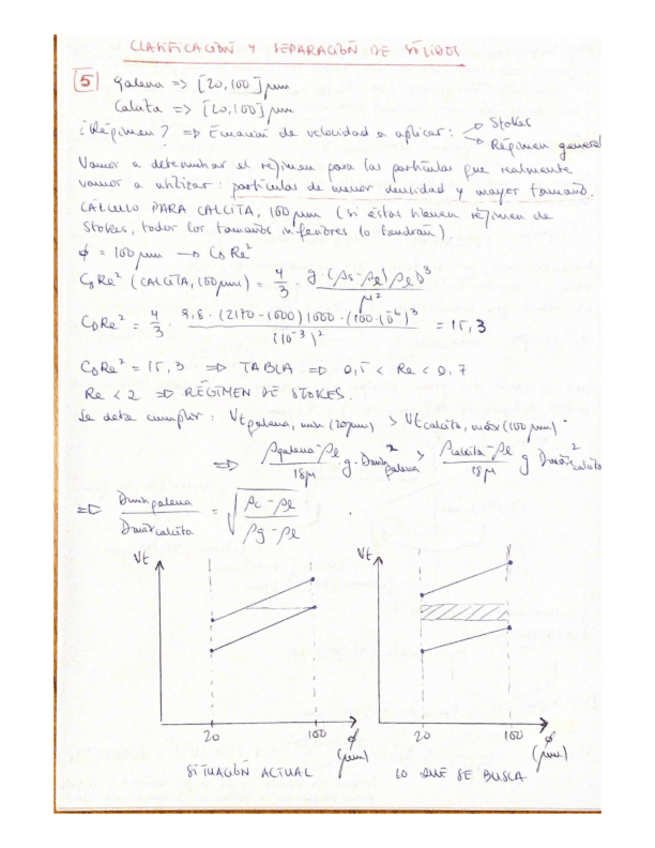 CLASIFICACIÓN Y SEPARACIÓN DE SÓLIDOS
5 galena => [20,100] μm
Calcita => [20,100] μm
¿Régimen? => Ecuación de velocidad a aplicar: Stokes
Régimen general
Vamos a determinar el régimen para las partículas que realmente
vamos a utilizar: partículas de menor densidad y mayor tamaño.
CÁLCULO PARA CALCITA, 100 μm (si éstas tienen régimen de
Stokes, todos los tamaños inferiores lo tendrán).
ϕ = 100 μm → CD Re²
CD Re² (CALCITA, 100 μm) = 4/3 · g·(ρs-ρl)ρl D³ / μ²
CD Re² = 4/3 · 9,8·(2170-1000)1000·(100·10⁻⁶)³ / (10⁻³)² = 15,3
CD Re² = 15,3 => TABLA => 0,5 < Re < 0,7
Re < 2 => RÉGIMEN DE STOKES.
Se debe cumplir: Vt galena, min (20μm) > Vt calcita, máx (100 μm).
=> ρgalena-ρl / 18μ g·Dmin² galena > ρcalcita-ρl / 18μ g Dmáx² calcita
=> Dmin galena / Dmáx calcita = √(ρc-ρl / ρg-ρl) .
Vt Vt
20 100 ϕ (μm) 20 100 ϕ (μm)
SITUACIÓN ACTUAL LO QUE SE BUSCA